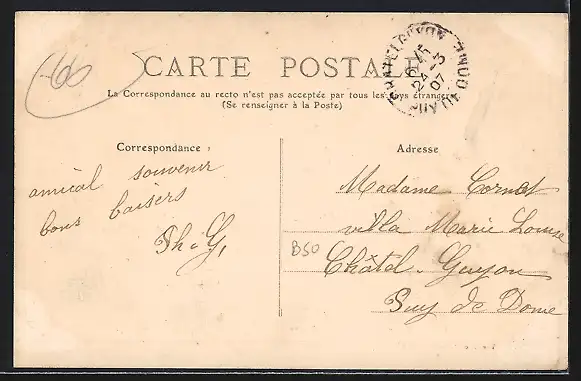 66
CARTE POSTALE
La Correspondance au recto n'est pas acceptée par tous les pays étrangers
(Se renseigner à la Poste)
CHATELGUYON PUY DE DOME
24 -3
07
Correspondance :
Adresse
amical souvenir
bons baisers
Th. G,
B50
Madame Cornet
villa Marie Louise
Châtel-Guyon
Puy de Dome